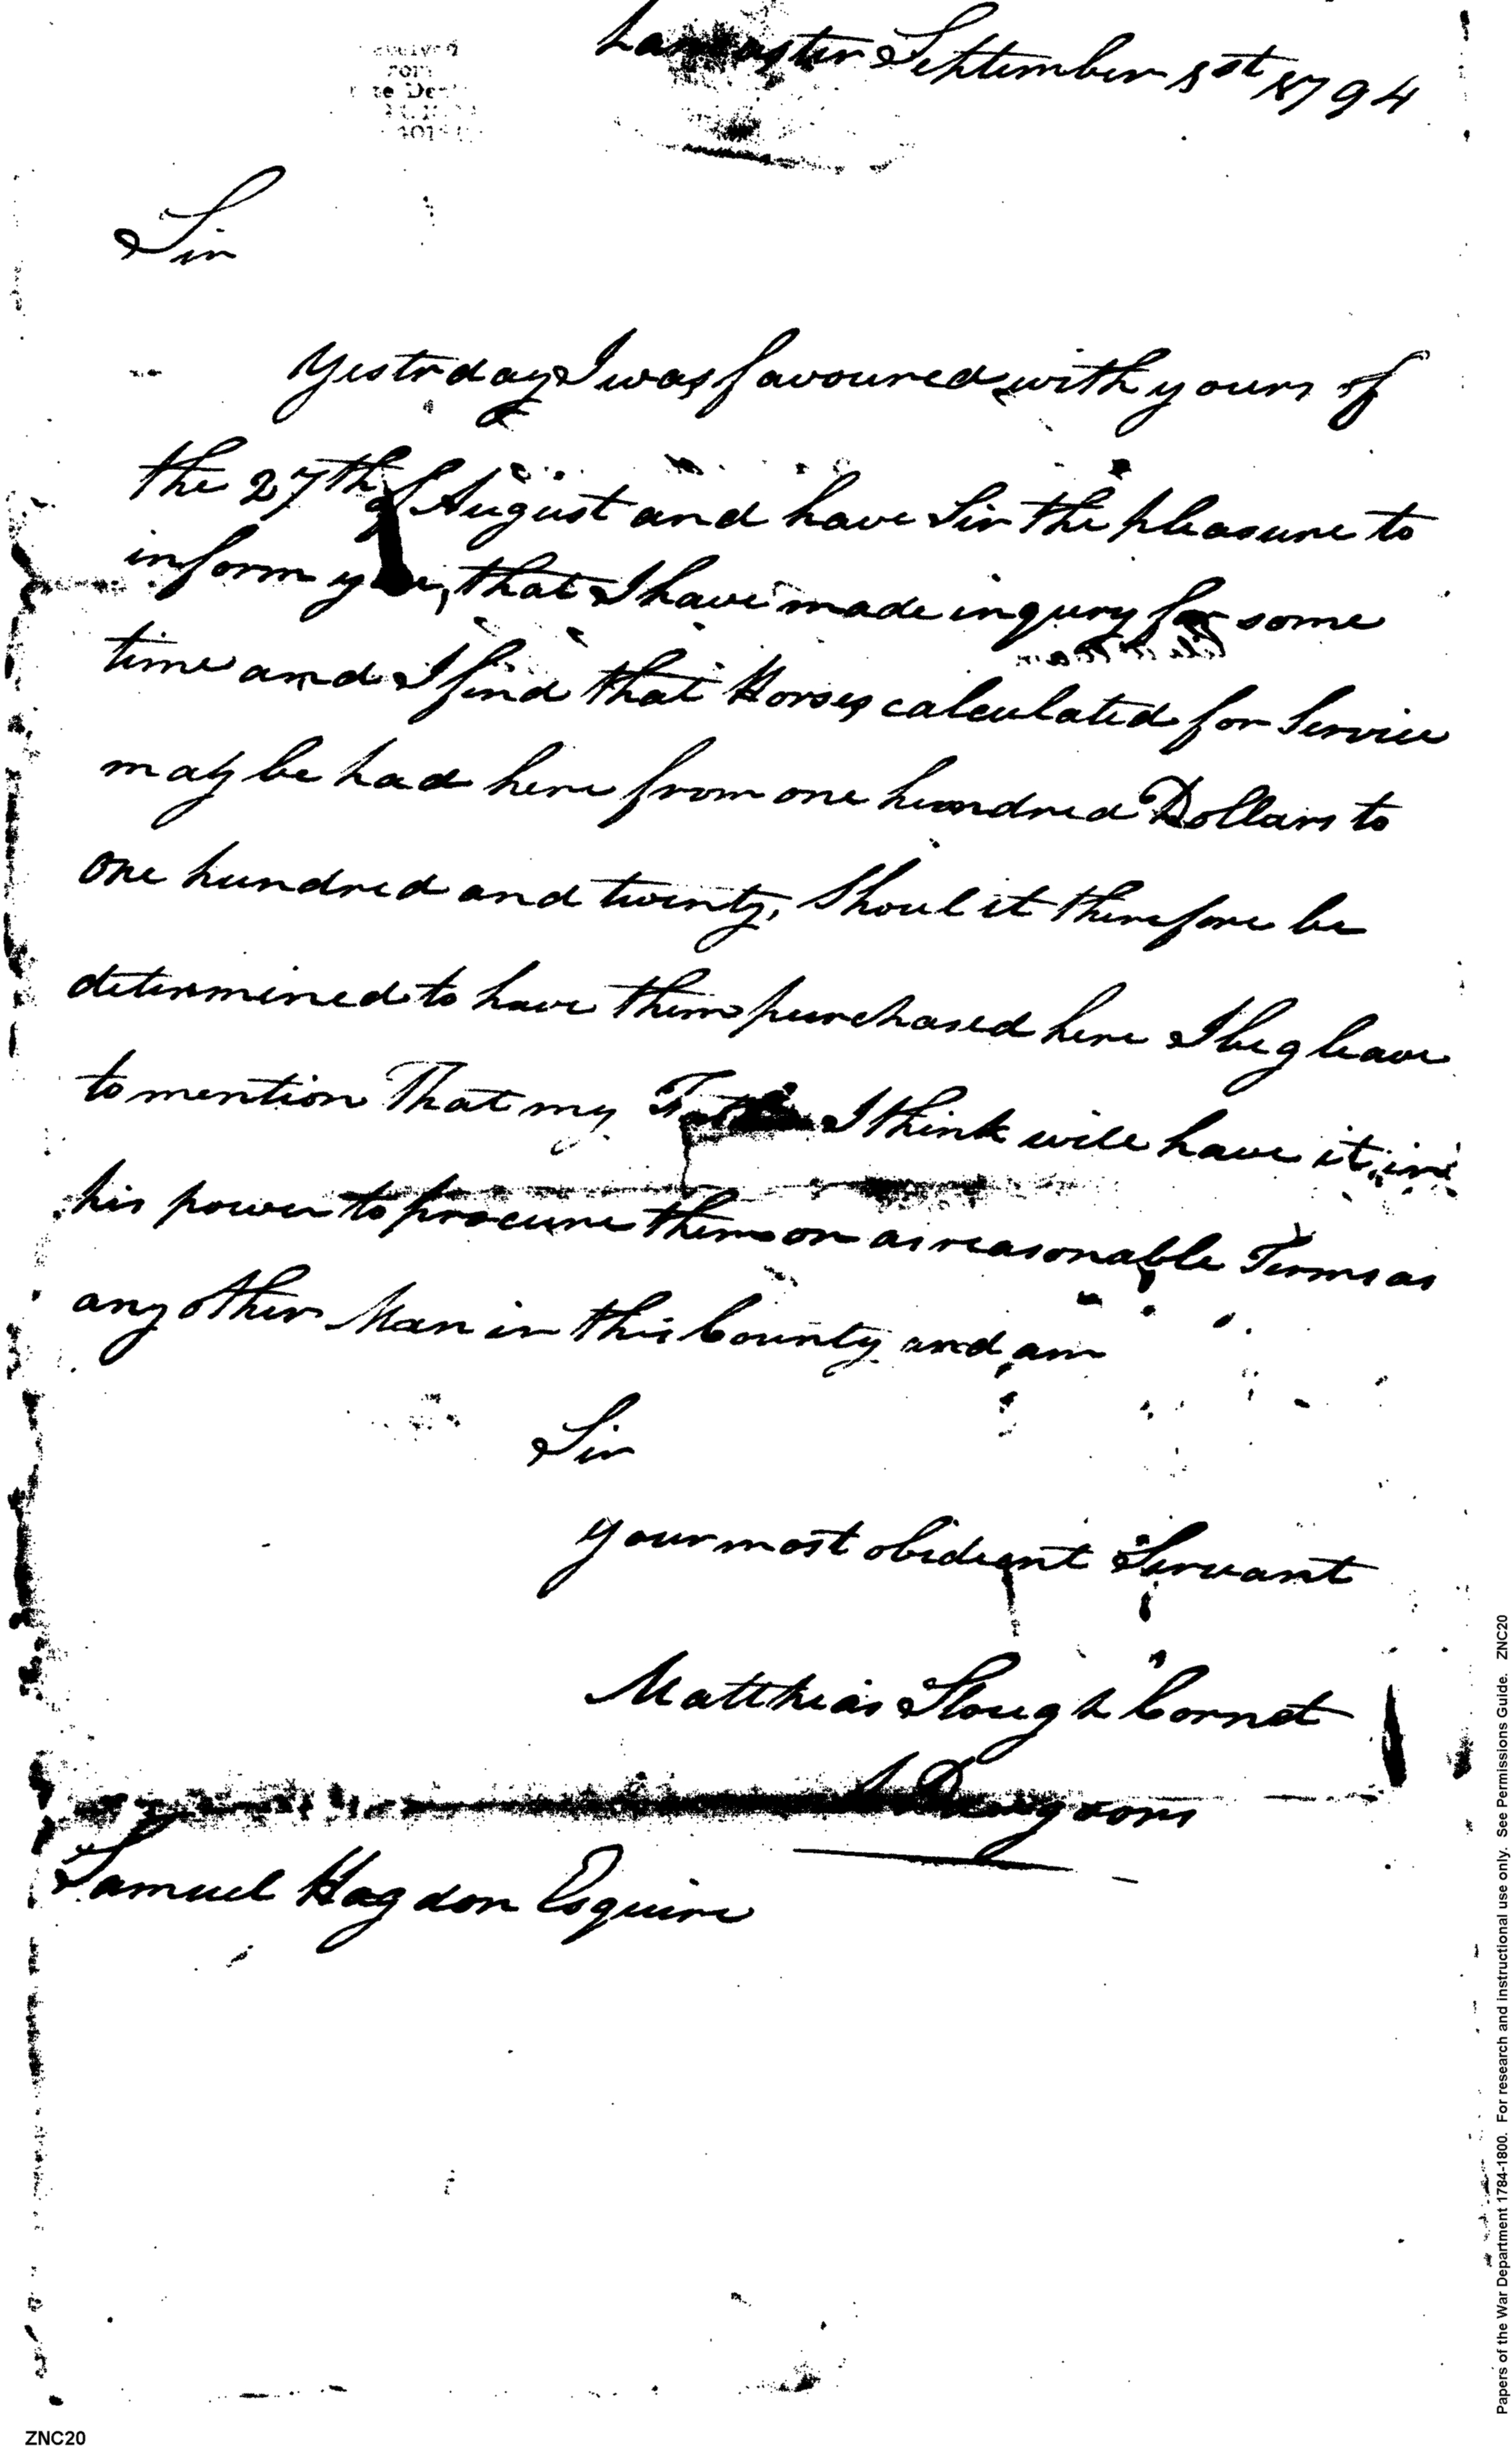 Lancaster September 1st 1794
Sir
Yestrday I was favoured with yours of
the 27th of August and have Sir the pleasure to
inform you, that I have made inqury for some
time and I find that Horses calculated for Service
may be had here from one hundred Dollars to
one hundred and twenty, Shoul it therefore be
determined to have them purchased here I beg leave
to mention That my I think will have it in
his power to procure them on as reasonable Terms as
any other Man in this County and am
Sir
your most obedient Servant
Matthias Slough Cornet
Dragoons
Samuel Hogdon Esquire
ZNC20
Papers of the War Department 1784-1800. For research and instructional use only. See Permissions Guide. ZNC20